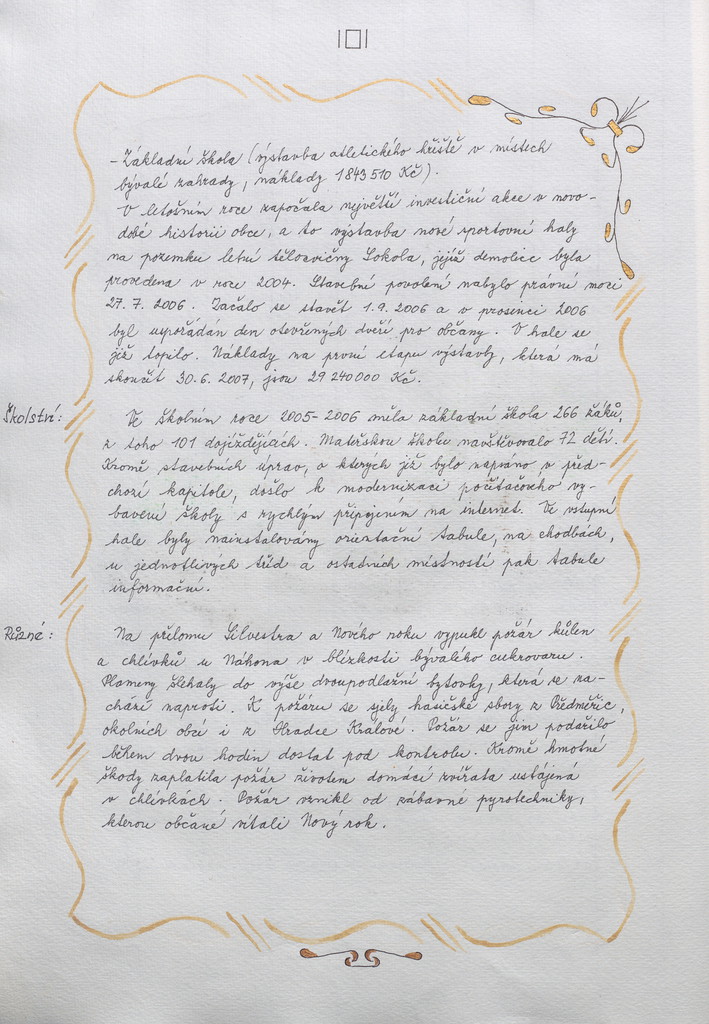 101
- Základní škola (výstavba atletického hřiště v místech
bývalé zahrady, náklady 1843 510 Kč).
V letošním roce započala největší investiční akce v novo-
dobé historii obce, a to výstavba nové sportovní haly
na pozemku letní tělocvičny Sokola, jejíž demolice byla
provedena v roce 2004. Stavební povolení nabylo právní moci
27. 7. 2006. Začalo se stavět 1. 9. 2006 a v prosinci 2006
byl uspořádán den otevřených dveří pro občany. V hale se
již topilo. Náklady na první etapu výstavby, která má
skončit 30. 6. 2007, jsou 29 240 000 Kč.
Školství: Ve školním roce 2005-2006 měla základní škola 266 žáků,
z toho 101 dojíždějících. Mateřskou školu navštěvovalo 72 dětí.
Kromě stavebních úprav, o kterých již bylo napsáno v před-
chozí kapitole, došlo k modernizaci počítačového vy-
bavení školy s rychlým připojením na internet. Ve vstupní
hale byly nainstalovány orientační tabule, na chodbách,
u jednotlivých tříd a ostatních místností pak tabule
informační.
Různé: Na přílomu Silvestra a Nového roku vypukl požár kůlen
a chlívků u Náhona v blízkosti bývalého cukrovaru.
Plameny šlehaly do výše dvoupodlažní bytovky, která se na-
chází naproti. K požáru se sjely hasičské sbory z Předměřic,
okolních obcí i z Hradce Králové. Požár se jim podařilo
během dvou hodin dostat pod kontrolu. Kromě hmotné
škody zaplatila požár životem domácí zvířata ustájená
v chlívkách. Požár vznikl od zábavné pyrotechniky,
kterou občané vítali Nový rok.